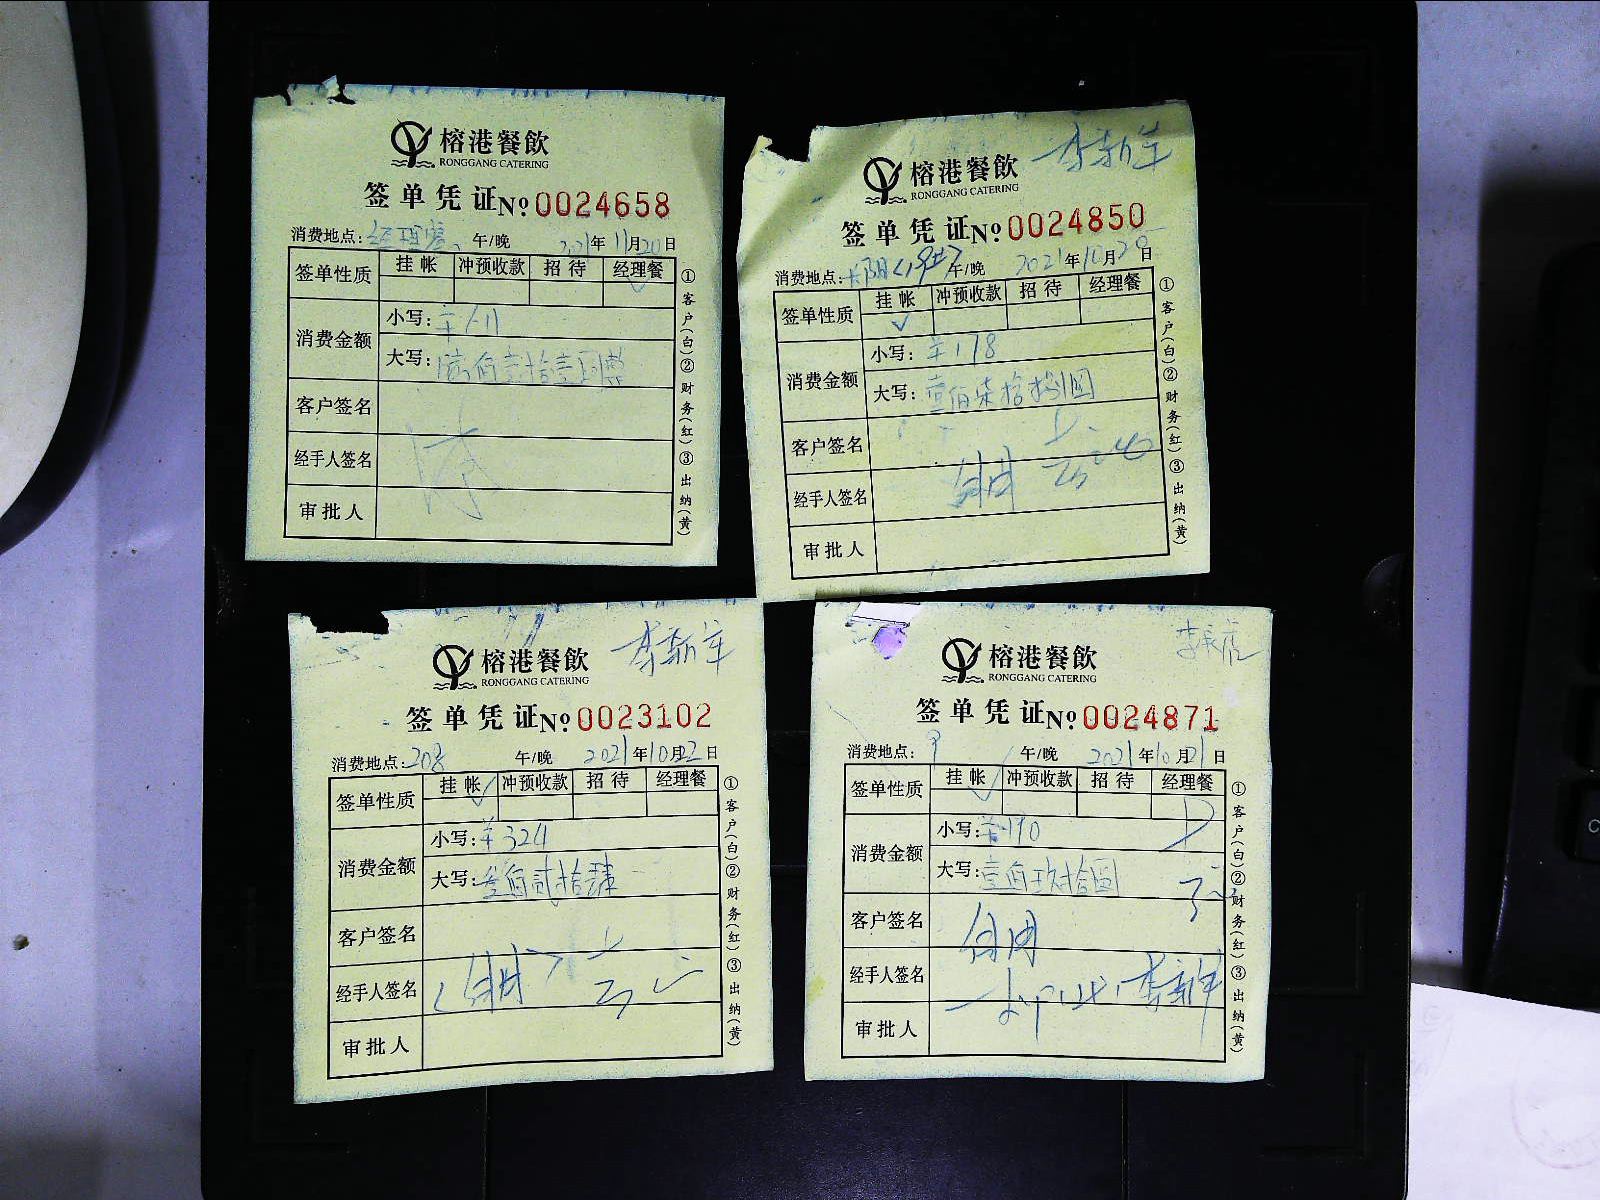 榕港餐飲
RONGGANG CATERING
签单凭证№0024658
消费地点: 午/晚 2021年11月20日
签单性质 挂帐 冲预收款 招待 经理餐
消费金额
小写:
大写:
客户签名
经手人签名
审批人
①客户(白)②财务(红)③出纳(黄)
李新军
榕港餐飲
RONGGANG CATERING
签单凭证№0024850
消费地点: 午/晚 2021年10月20日
签单性质 挂帐 冲预收款 招待 经理餐
✓
消费金额
小写:¥178
大写:壹佰柒拾捌圆
客户签名
经手人签名
审批人
①客户(白)②财务(红)③出纳(黄)
李新军
榕港餐飲
RONGGANG CATERING
签单凭证№0023102
消费地点:208 午/晚 2021年10月22日
签单性质 挂帐 冲预收款 招待 经理餐
✓
消费金额
小写:¥324
大写:叁佰贰拾肆
客户签名
经手人签名
审批人
①客户(白)②财务(红)③出纳(黄)
榕港餐飲
RONGGANG CATERING
签单凭证№0024871
消费地点: 午/晚 2021年10月21日
签单性质 挂帐 冲预收款 招待 经理餐
✓
消费金额
小写:¥190
大写:壹佰玖拾圆
客户签名
经手人签名 李新军
审批人
①客户(白)②财务(红)③出纳(黄)